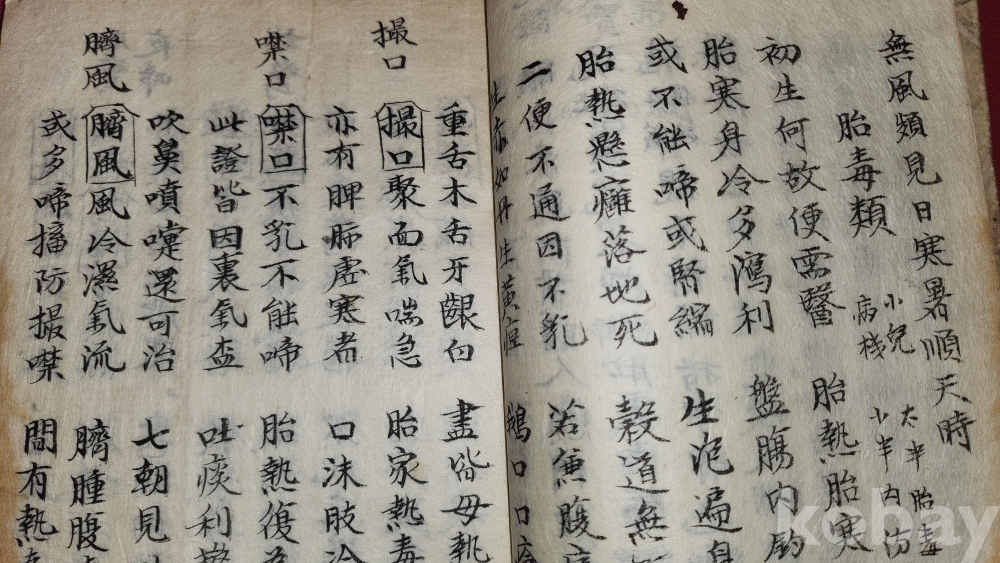 無風頻見日寒暑順天時
胎毒類
小兒
病機
太半胎毒
少半內傷
初生何故便需醫 胎熱胎寒
胎寒身冷多瀉利 盤腸內釣
或不能啼或腎縮 生泡遍身
胎熱懸癰落地死 穀道無
二便不通因不乳 若兼腹
生赤如丹生黃疸 鵝口口瘡
重舌木舌牙齦白 盡皆母熱
撮口
撮口聚而氣喘急 胎家熱毒
亦有脾肺虛寒者 口沫肢冷
噤口
噤口不乳不能啼 胎熱復為
此證皆因裏氣盃 吐痰利
吹鼻噴嚏還可治 七朝見
臍風
臍風風冷濕氣流 臍腫腹
或多啼搐防撮噤 間有熱
kobay